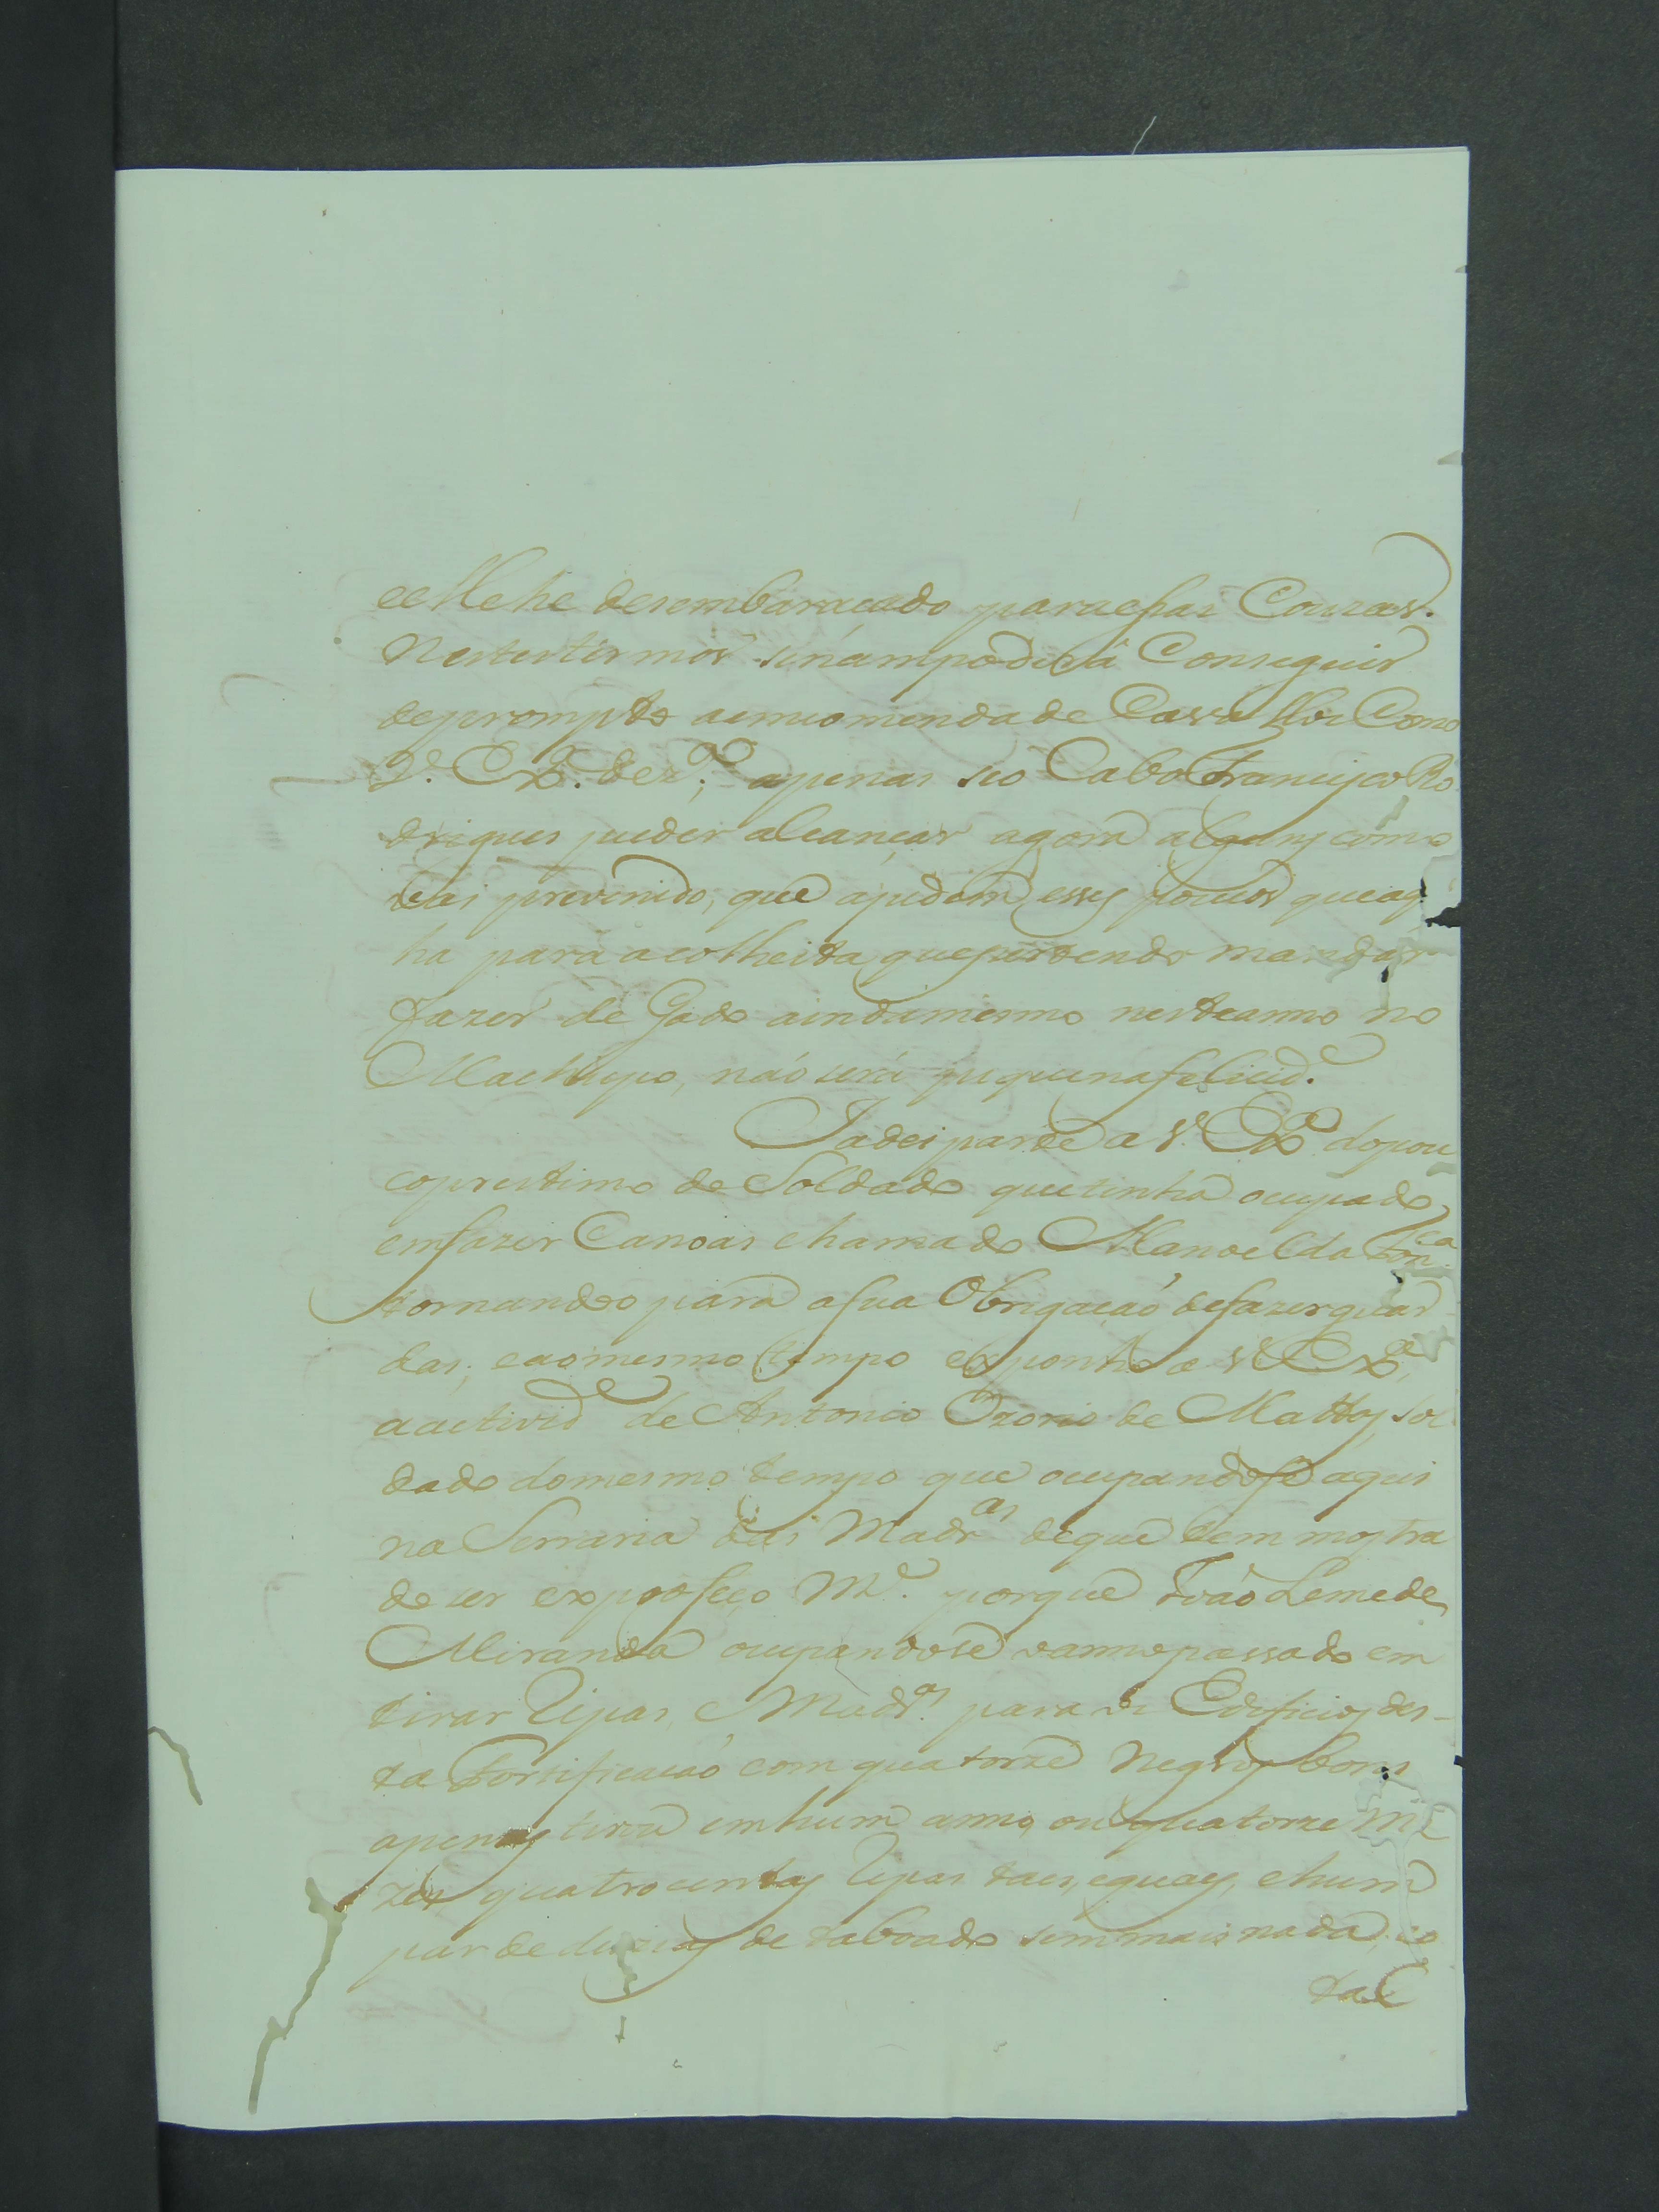 e elle he desembaraçado para essas Couzas.
Nestes termos se nam poderâ Conseguir
de prompto a emcomenda de Cavallos Como
V. Ex.ª dez.ª; apenas se o Cabo Francisco Ro
drigues puder alcançar agora alguns como
vai prevenido, que ajudem esses poucos que aq.
ha para a colheita que pertendo mandar
fazer de Gado ainda mesmo neste anno no
Machupo, não será piquena felicid.e
Ja dei parte a V. Ex.ª do pou
co prestimo do Soldado que tinha ocupado
em fazer Canoas chamado Manoel da Fon.ca
tornando o para a sua Obrigação de fazer guar
das, e ao mesmo tempo exponho a V. Ex.ª
a activid.e de Antonio Ozorio de Mattos, sol
dado do mesmo tempo que ocupandose aqui
na Serraria das Madr.as de que tem mostra
do ser experto faço M.e porque João Leme de
Miranda ocupandose o anno passado em
tirar Ripas e Madr.as para os Edificios des-
ta Fortificação com quatorze Negros bons
apenas tirou em hum anno, ou quatorze me
zes quatrocentas Ripas taes, e quaes, e hum
par de duzias de taboado sem mais nada, co
tal